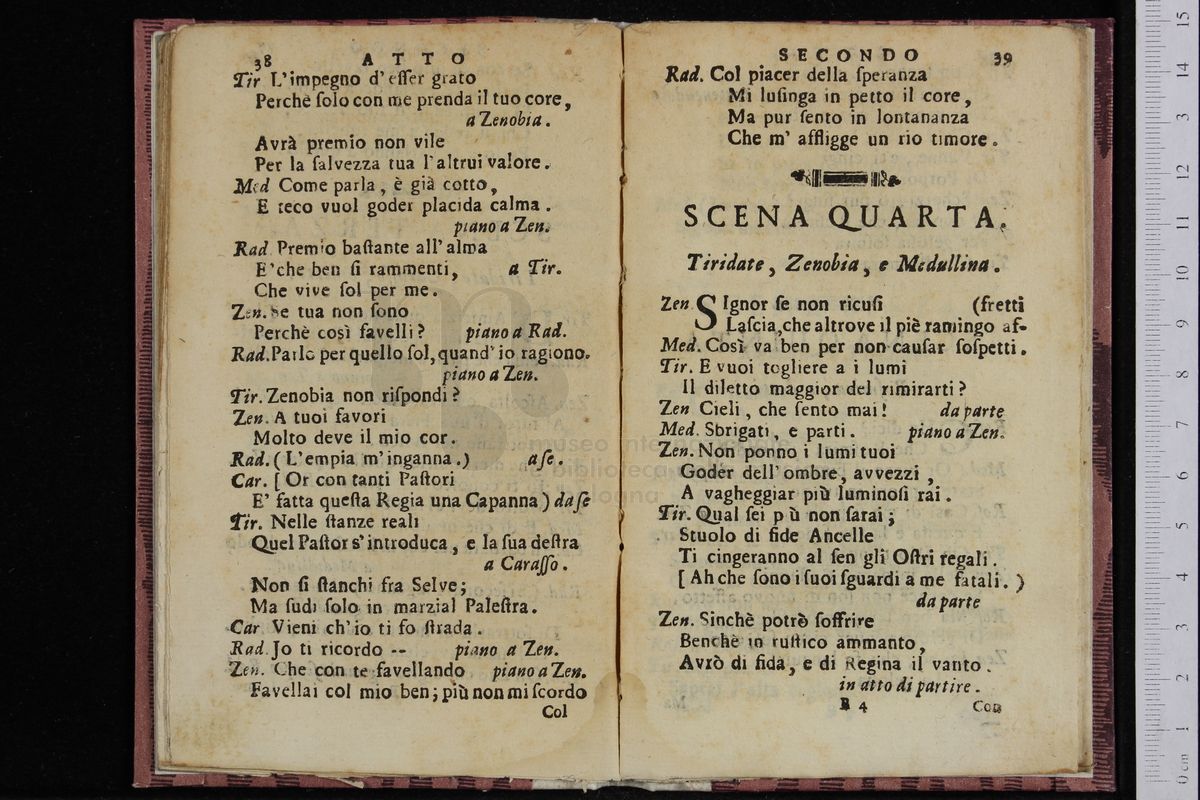 38 ATTO
Tir L'impegno d'eſſer grato
Perchè ſolo con me prenda il tuo core,
a Zenobia.
Avrà premio non vile
Per la ſalvezza tua l'altrui valore.
Med Come parla, è già cotto,
E teco vuol goder placida calma.
piano a Zen.
Rad Premio baſtante all'alma
E' che ben ſi rammenti, a Tir.
Che vive ſol per me.
Zen. Se tua non ſono
Perchè così favelli? piano a Rad.
Rad. Parlo per quello ſol, quand' io ragiono.
piano a Zen.
Tir. Zenobia non riſpondi?
Zen. A tuoi favori
Molto deve il mio cor.
Rad. (L'empia m'inganna.) a ſe.
Car. [Or con tanti Paſtori
E' fatta queſta Regia una Capanna) da ſe
Tir. Nelle ſtanze reali
Quel Paſtor s'introduca, e la ſua deſtra
a Caraſſo.
Non ſi ſtanchi fra Selve;
Ma ſudi ſolo in marzial Paleſtra.
Car Vieni ch'io ti fo ſtrada.
Rad. Jo ti ricordo -- piano a Zen.
Zen. Che con te favellando piano a Zen.
Favellai col mio ben; più non mi ſcordo
Col
SECONDO 39
Rad. Col piacer della ſperanza
Mi luſinga in petto il core,
Ma pur ſento in lontananza
Che m' affligge un rio timore.
SCENA QUARTA.
Tiridate, Zenobia, e Medullina.
Zen. SIgnor ſe non ricuſi (fretti
Laſcia, che altrove il piè ramingo af-
Med. Così va ben per non cauſar ſoſpetti.
Tir. E vuoi togliere a i lumi
Il diletto maggior del rimirarti?
Zen Cieli, che ſento mai! da parte
Med. Sbrigati, e parti. piano a Zen.
Zen. Non ponno i lumi tuoi
Goder dell'ombre, avvezzi,
A vagheggiar più luminoſi rai.
Tir. Qual ſei p ù non ſarai;
Stuolo di fide Ancelle
Ti cingeranno al ſen gli Oſtri regali.
[Ah che ſono i ſuoi ſguardi a me fatali.)
da parte
Zen. Sinchè potrò ſoffrire
Benchè in ruſtico ammanto,
Avrò di fida, e di Regina il vanto.
in atto di partire.
B 4 Con
museo internazionale
e biblioteca
bologna